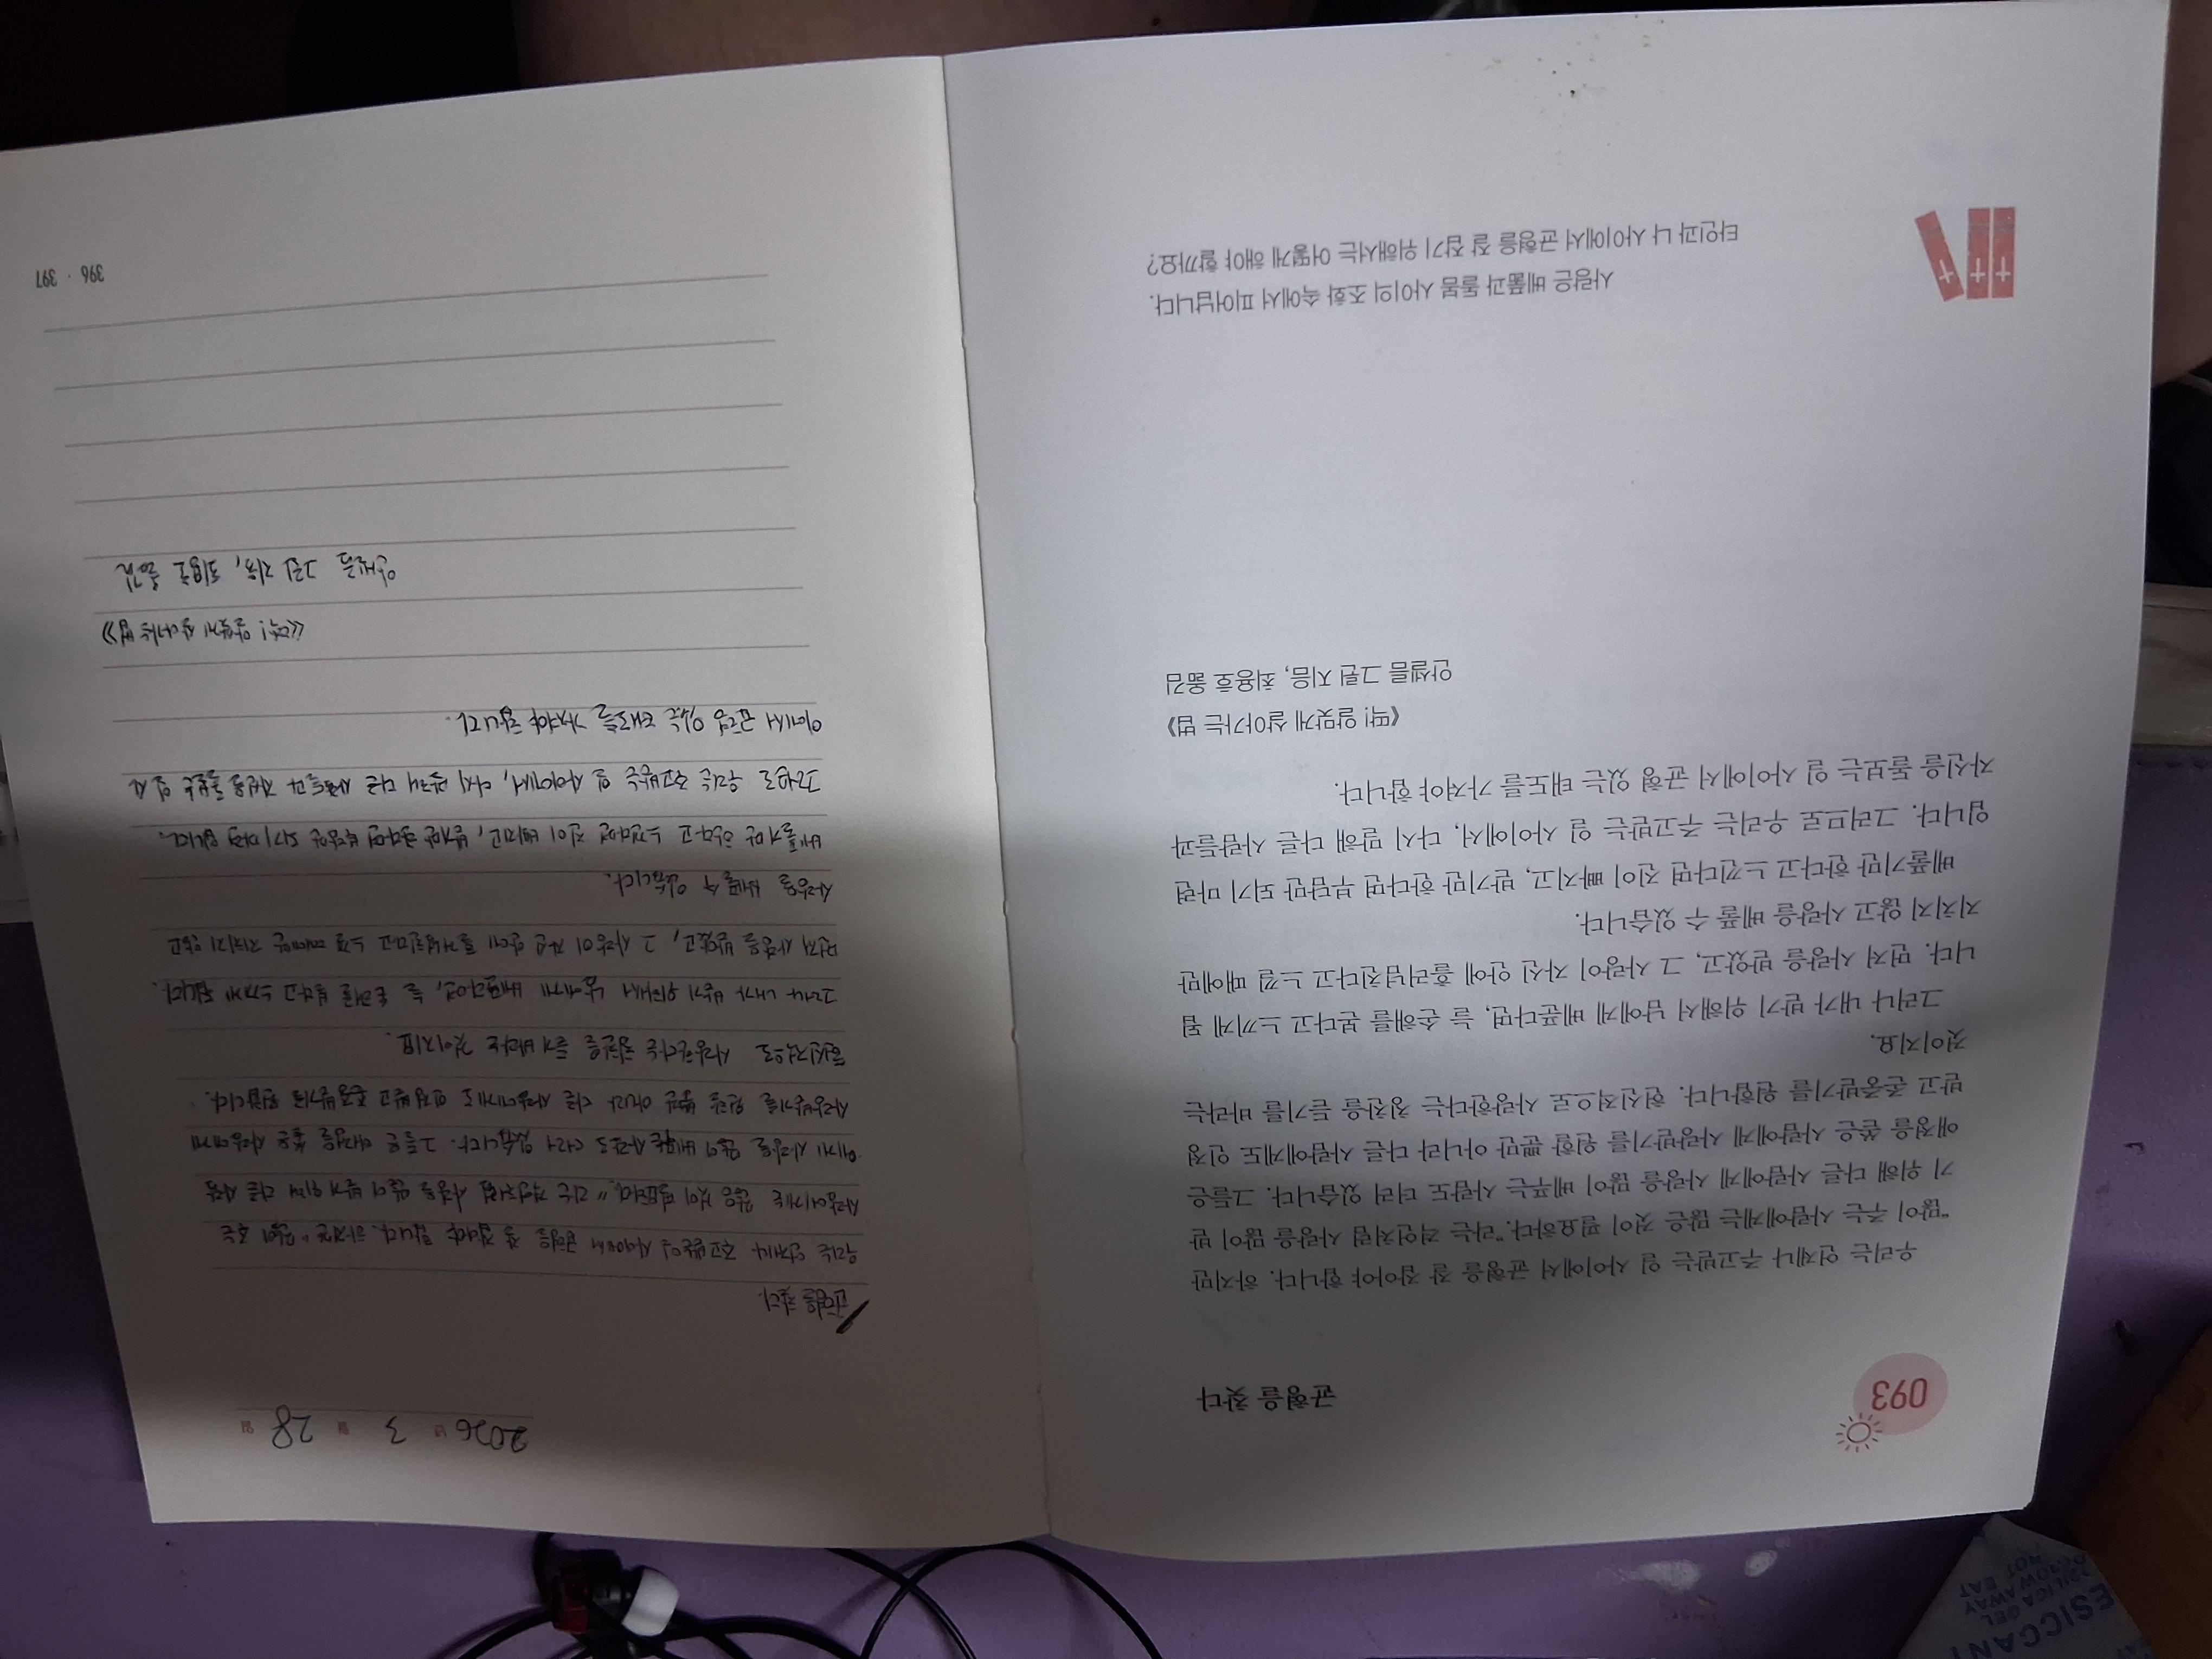 093
균형을 찾다
우리는 언제나 주고받는 일 사이에서 균형을 잘 잡아야 합니다. 하지만
"많이 주는 사람에게는 많은 것이 필요하다."라는 격언처럼 사랑을 많이 받
기 위해 다른 사람에게 사랑을 많이 베푸는 사람도 더러 있습니다. 그들은
애정을 쏟은 사람에게 사랑받기를 원할 뿐만 아니라 다른 사람에게도 인정
받고 존중받기를 원합니다. 헌신적으로 사랑한다는 칭찬을 듣기를 바라는
것이지요.
그러나 내가 받기 위해서 남에게 베푼다면, 늘 손해를 본다고 느끼게 됩
니다. 먼저 사랑을 받았고, 그 사랑이 자신 안에 흘러넘친다고 느낄 때에만
지치지 않고 사랑을 베풀 수 있습니다.
베풀기만 한다고 느낀다면 진이 빠지고, 받기만 한다면 부담만 되기 마련
입니다. 그러므로 우리는 주고받는 일 사이에서, 다시 말해 다른 사람들과
자신을 돌보는 일 사이에서 균형 있는 태도를 가져야 합니다.
《딱! 알맞게 살아가는 법》
안셀름 그륀 지음, 최용호 옮김
사랑은 베풂과 돌봄 사이의 조화 속에서 피어납니다.
타인과 나 사이에서 균형을 잘 잡기 위해서는 어떻게 해야 할까요?
2026 년 3 월 28 일
균형을 찾다
우리는 언제나 주고받는 일 사이에서 균형을 잘 잡아야 합니다. 하지만 "많이 주는
사람에게는 많은 것이 필요하다."라는 격언처럼 사랑을 많이 받기 위해 다른 사람
에게 사랑을 많이 베푸는 사람도 더러 있습니다. 그들은 애정을 쏟은 사람에게
사랑받기를 원할 뿐만 아니라 다른 사람에게도 인정받고 존중받기를 원합니다.
헌신적으로 사랑한다는 칭찬을 듣기 바라는 것이지요.
그러나 내가 받기 위해서 남에게 베푼다면, 늘 손해를 본다고 느끼게 됩니다.
먼저 사랑을 받았고, 그 사랑이 자신 안에 흘러넘친다고 느낄 때에만 지치지 않고
사랑을 베풀 수 있습니다.
베풀기만 한다고 느낀다면 진이 빠지고, 받기만 한다면 부담만 되기 마련입니다.
그러므로 우리는 주고받는 일 사이에서, 다시 말해서 다른 사람들과 자신을 돌보는 일 사
이에서 균형 있는 태도를 가져야 합니다.
《딱! 알맞게 살아가는 법》
안셀름 그륀 지음, 최용호 옮김
396 · 397
DESICCANT
SILICA GEL
THROW AWAY
DO NOT EAT